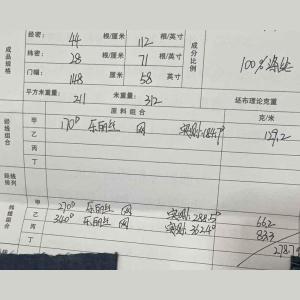 成品规格
经密： 44 根/厘米 112 根/英寸
纬密： 28 根/厘米 71 根/英寸
门幅： 148 厘米 58 英寸
成分比例 100%涤纶
平方米重量： 211 米重量： 312
坯布理论克重
原料组合 克/米
经线组合
甲 170D 乐丽丝 网 实测184.7D 129.2
乙
丙
丁
经线排列
纬线组合
甲 270D 乐丽丝 网 实测288.5D 66.2
乙 340D 乐丽丝 网 实测362.4D 83.3
丙
丁 278.7